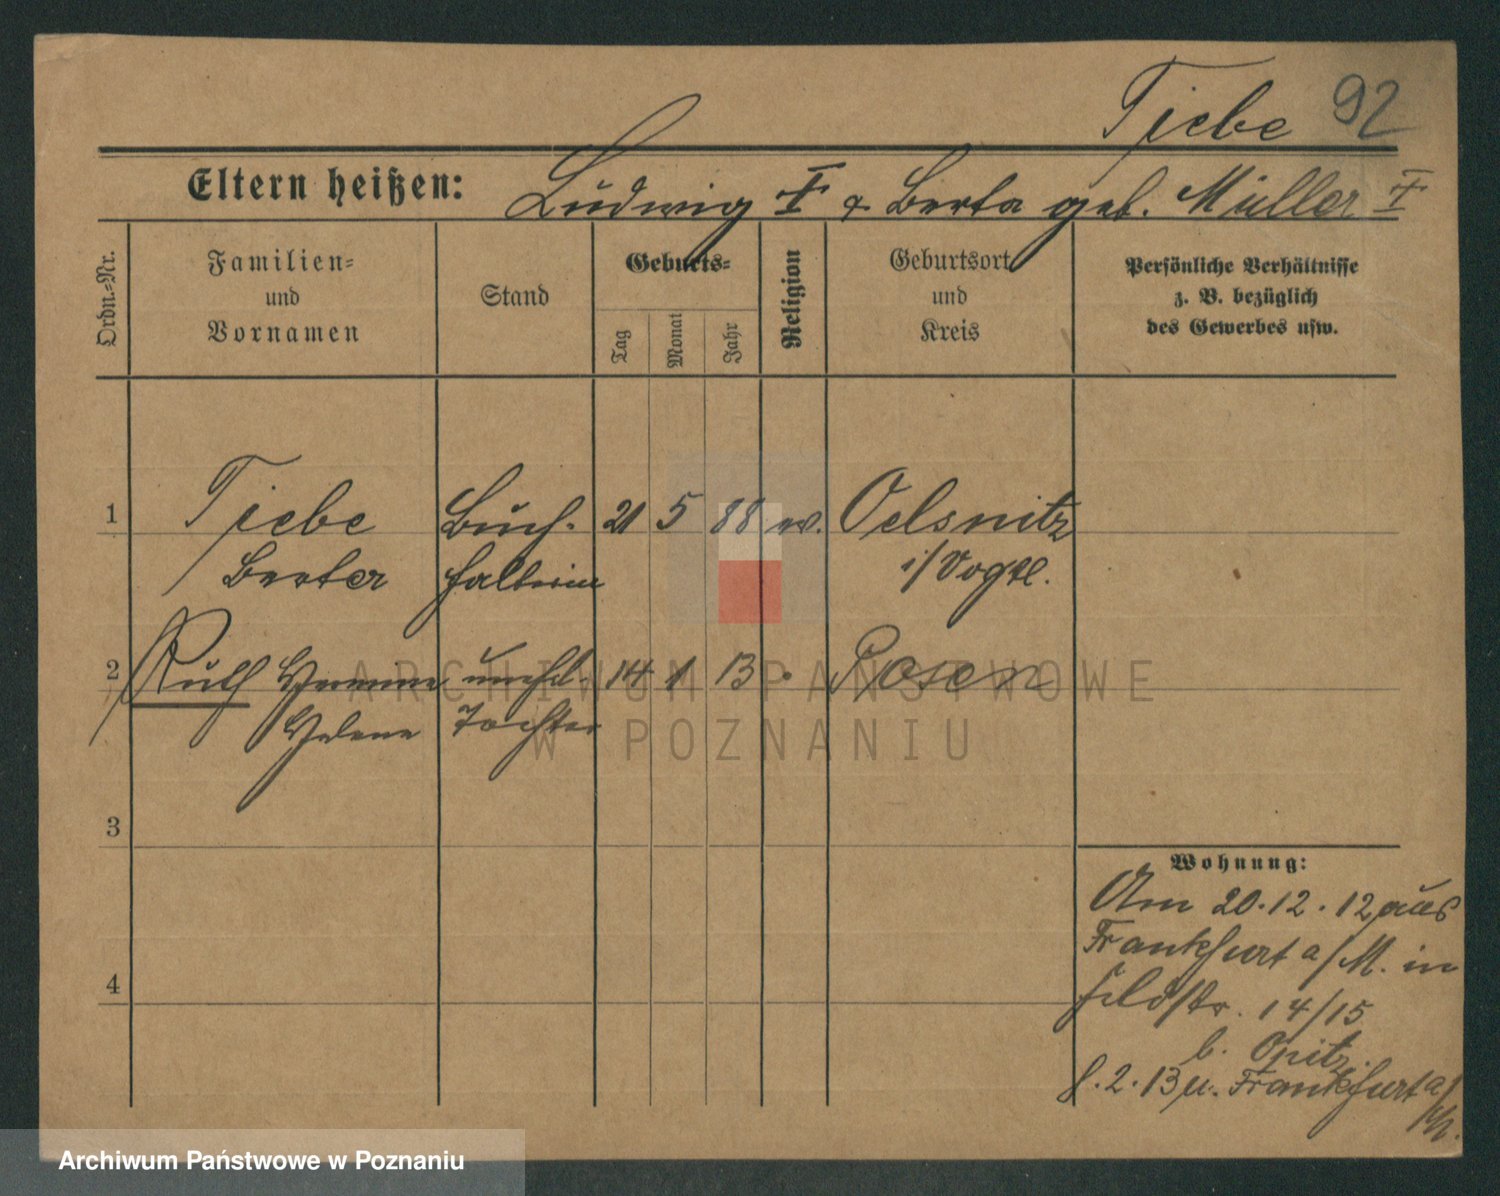 Tiebe 92
Eltern heißen: Ludwig † & Berta geb. Müller †
Ordn.-Nr.
Familien-
und
Vornamen
Stand
Geburts-
Tag
Monat
Jahr
Religion
Geburtsort
und
Kreis
Persönliche Verhältnisse
z. B. bezüglich
des Gewerbes usw.
1 Tiebe Buch- 21 5 88 ev. Oelsnitz
Berta halterin i/Vogtl.
2 Ruth unehel. 14 1 13 Posen
Helene Tochter
3
4
Wohnung:
Am 20.12.12 aus
Frankfurt a/M. in
Feldstr. 14/15
b. Opitz.
8.2.13 u. Frankfurt a/
M.
ARCHIWUM PAŃSTWOWE
W POZNANIU
Archiwum Państwowe w Poznaniu